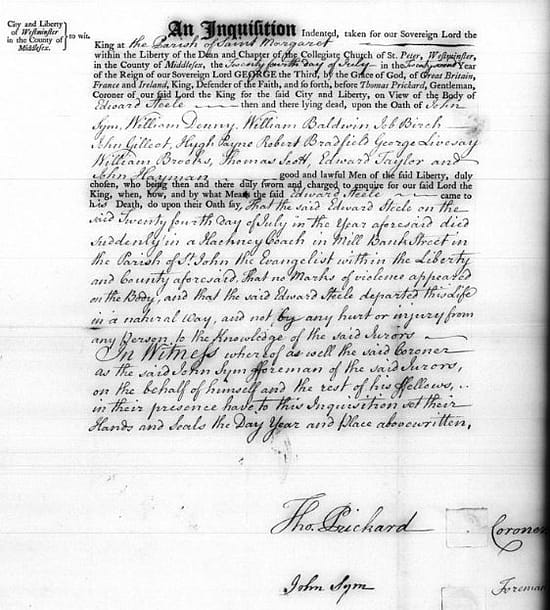 City and Liberty
of Westminster
in the County of
Middlesex.
} to wit.
An Inquisition Indented, taken for our Sovereign Lord the
King at the Parish of Saint Margaret
within the Liberty of the Dean and Chapter of the Collegiate Church of St. Peter, Westminster,
in the County of Middlesex, the Twenty fourth day of July in the Year
of the Reign of our Sovereign Lord GEORGE the Third, by the Grace of God, of Great Britain,
France and Ireland, King, Defender of the Faith, and so forth, before Thomas Prickard, Gentleman,
Coroner of our said Lord the King for the said City and Liberty, on View of the Body of
Edward Steele then and there lying dead, upon the Oath of John
Sym, William Denny, William Baldwin Job Birch
John Gilleot, Hugh Payne Robert Bradfield George Livesay
William Brooks, Thomas Scott, Edward Taylor and
John Hayman good and lawful Men of the said Liberty, duly
chosen, who being then and there duly sworn and charged to enquire for our said Lord the
King, when, how, and by what Means the said Edward Steele came to
his Death, do upon their Oath say, That the said Edward Steele on the
said Twenty fourth Day of July in the Year aforesaid died
suddenly in a Hackney Coach in Mill Bank Street in
the Parish of St. John the Evangelist within the Liberty
and County aforesaid. That no Marks of violence appeared
on the Body, and that the said Edward Steele departed this Life
in a natural way, and not by any hurt or injury from
any Person, to the Knowledge of the said Jurors
In Witness whereof as well the said Coroner
as the said John Sym fforeman of the said Jurors,
on the behalf of himself and the rest of his ffellows,
in their presence have to this Inquisition set their
Hands and Seals the Day Year and Place abovewritten.
Tho. Prickard Coroner
John Sym Foreman